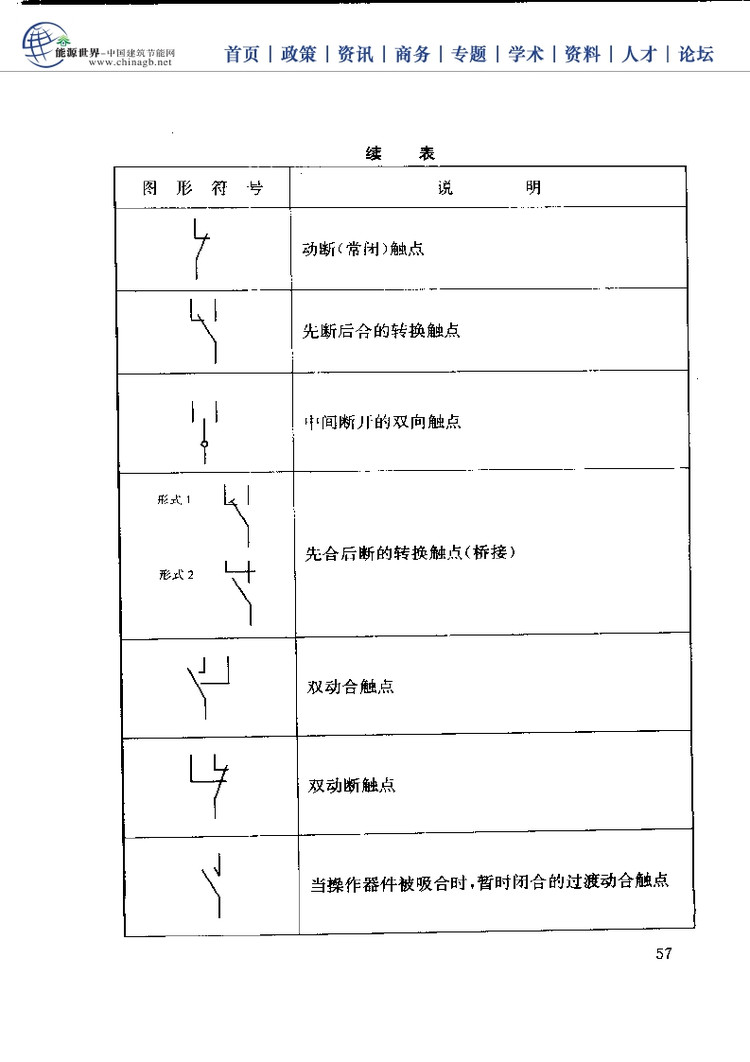 能源世界-中国建筑节能网
www.chinagb.net
首页 | 政策 | 资讯 | 商务 | 专题 | 学术 | 资料 | 人才 | 论坛
续 表
图 形 符 号 说 明
动断(常闭)触点
先断后合的转换触点
中间断开的双向触点
形式1
先合后断的转换触点(桥接)
形式2
双动合触点
双动断触点
当操作器件被吸合时,暂时闭合的过渡动合触点
57